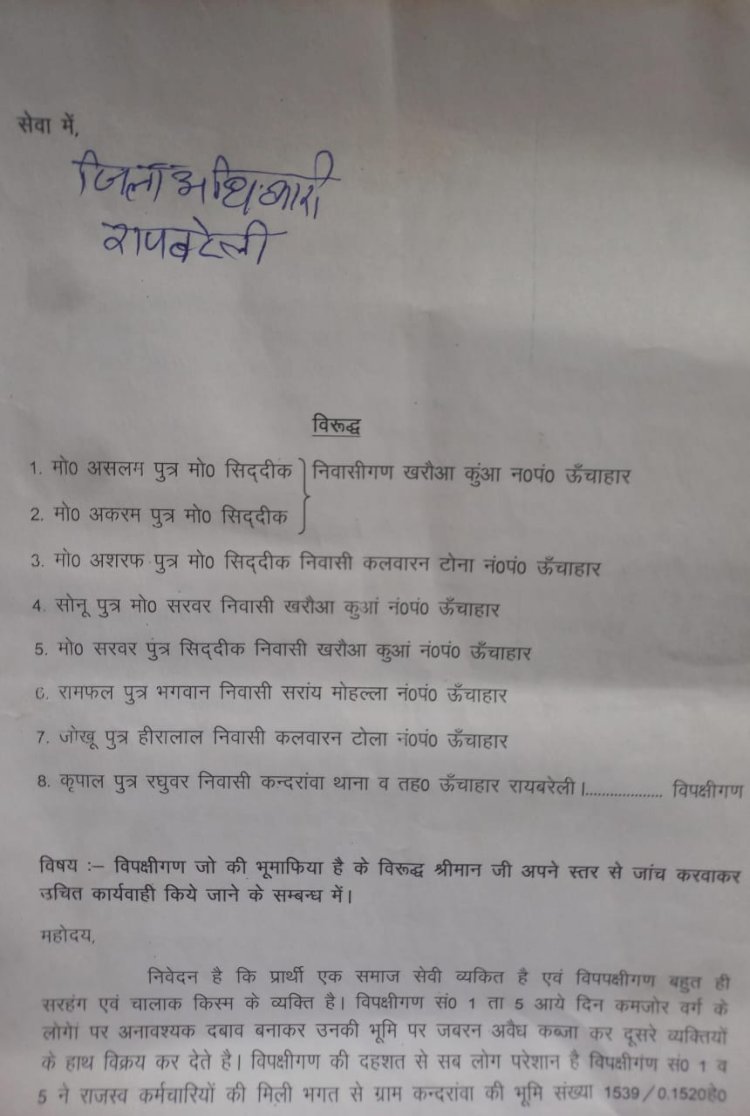 सेवा में,
जिलाअधिकारी
रायबरेली
विरूद्ध
1. मो0 असलम पुत्र मो0 सिद्दीक निवासीगण खरौआ कुंआ न0पं0 ऊँचाहार
2. मो0 अकरम पुत्र मो0 सिद्दीक
3. मो0 अशरफ पुत्र मो0 सिद्दीक निवासी कलवारन टोना नं0पं0 ऊँचाहार
4. सोनू पुत्र मो0 सरवर निवासी खरौआ कुआं नं0पं0 ऊँचाहार
5. मो0 सरवर पुत्र सिद्दीक निवासी खरौआ कुआं नं0पं0 ऊँचाहार
6. रामफल पुत्र भगवान निवासी सरांय मोहल्ला नं0पं0 ऊँचाहार
7. जोखू पुत्र हीरालाल निवासी कलवारन टोला नं0पं0 ऊँचाहार
8. कृपाल पुत्र रघुवर निवासी कन्दरांवा थाना व तह0 ऊँचाहार रायबरेली।................... विपक्षीगण
विषय :– विपक्षीगण जो की भूमाफिया है के विरूद्ध श्रीमान जी अपने स्तर से जांच करवाकर
उचित कार्यवाही किये जाने के सम्बन्ध में।
महोदय,
निवेदन है कि प्रार्थी एक समाज सेवी व्यकित है एवं विपपक्षीगण बहुत ही
सरहंग एवं चालाक किस्म के व्यक्ति है। विपक्षीगण सं0 1 ता 5 आये दिन कमजोर वर्ग के
लोगों पर अनावश्यक दबाव बनाकर उनकी भूमि पर जबरन अवैध कब्जा कर दूसरे व्यक्तियों
के हाथ विक्रय कर देते है। विपक्षीगण की दहशत से सब लोग परेशान है विपक्षीगण सं0 1 व
5 ने राजस्व कर्मचारियों की मिली भगत से ग्राम कन्दरांवा की भूमि संख्या 1539/0.1520हे0